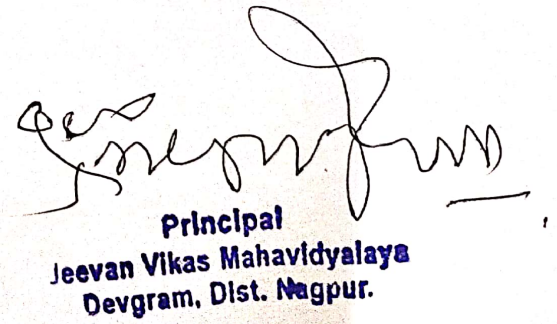 Principal
Jeevan Vikas Mahavidyalaya
Devgram, Dist. Nagpur.